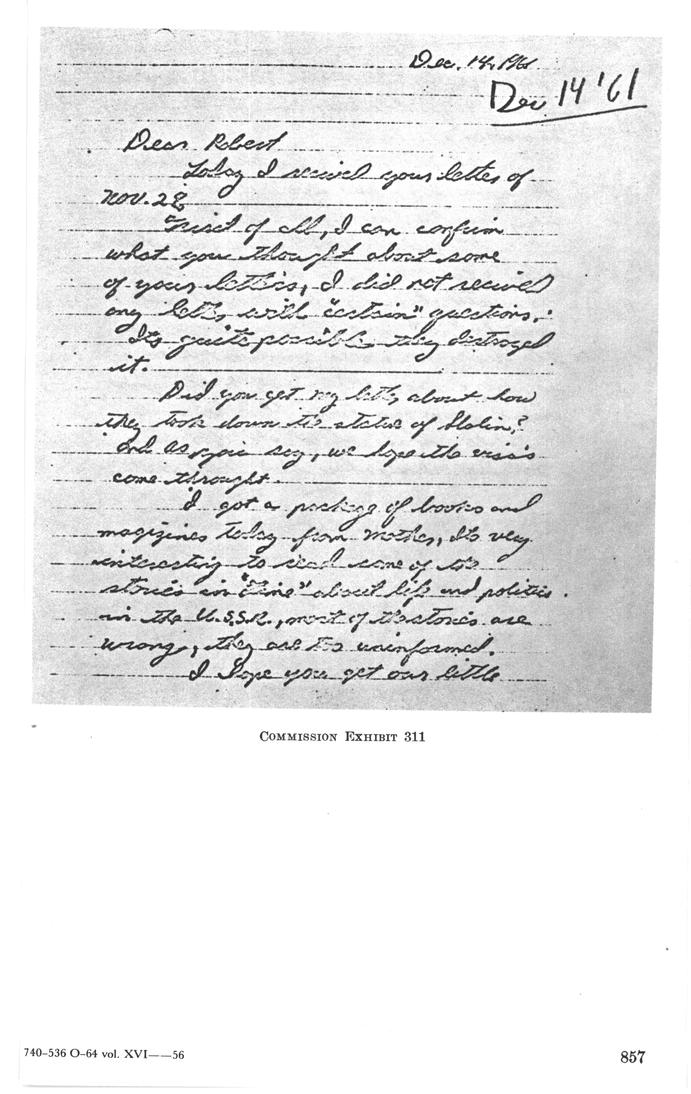 Dec. 14, 1961
Dec 14 '61
Dear Robert
Today I recived your letter of
Nov. 28
First of all, I can confirm
what you thought about some
of your letters, I did not recived
any letter with "certain" questions.
Its quite possible they destroyed
it.
Did you get my letter about how
they took down the statue of Stalin?
And as you say, we hope the visa's
come throught.
I got a package of books and
magizines today from mother, Its very
interesting to read some of the
stories in "Time" about life and politics
in the U.S.S.R., most of the stories are
wrong, they are too uninformed.
I hope you get our little
COMMISSION EXHIBIT 311
740-536 O-64 vol. XVI——56
857